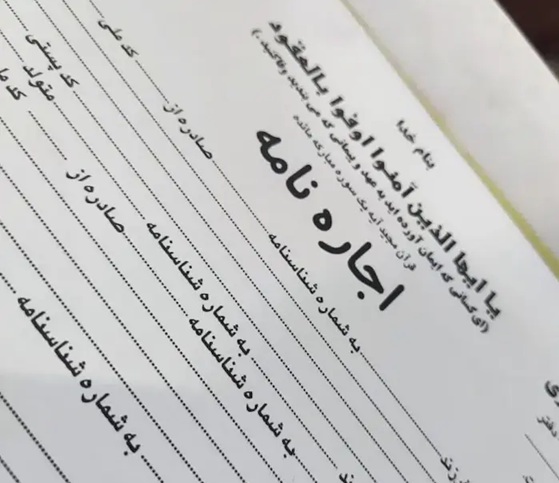 بنام خدا
یا ایها الذین آمنوا اوفوا بالعقود
(ای کسانی که ایمان آورده اید به عهد و پیمانی که می بندید وفا کنید.)
قرآن مجید آیه یک سوره مبارکه مائده
اجاره نامه
به شماره شناسنامه صادره از کد ملی
به شماره شناسنامه
کد پستی
به شماره شناسنامه صادره از متولد
به شماره شناسنامه